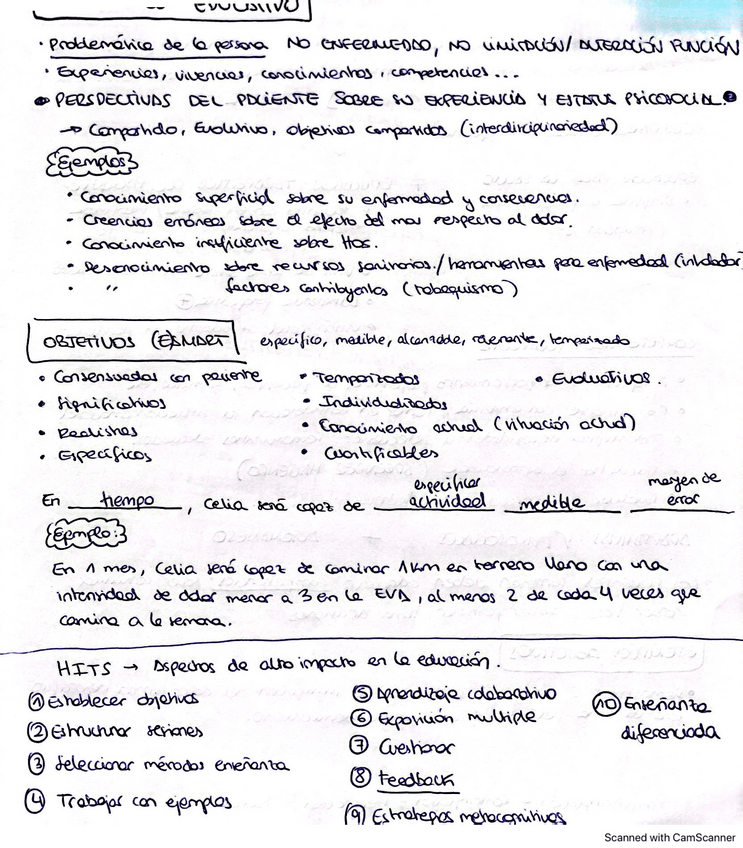 EVOLUTIVO
· Problemática de la persona NO ENFERMEDAD, NO LIMITACIÓN/ ALTERACIÓN FUNCIÓN
· Experiencias, vivencias, conocimientos, competencias...
PERSPECTIVAS DEL PACIENTE SOBRE SU EXPERIENCIA Y ESTATUS PSICOSOCIAL.
→ Compartido, Evolutivo, objetivos compartidos (interdisciplinariedad)
Ejemplos
· Conocimiento superficial sobre su enfermedad y consecuencias.
- Creencias erróneas sobre el efecto del mov respecto al dolor.
· Conocimiento insuficiente sobre ttos.
· Desconocimiento sobre recursos sanitarios/herramientas para enfermedad (inhalador
· " factores contribuyentes (tabaquismo)
OBJETIVOS (E)SMART específico, medible, alcanzable, relevante, temporizado
• Consensuados con paciente • Temporizados • Evaluativos.
• Significativos • Individualizados
• Realistas • Conocimiento actual (situación actual)
• Específicos • Cuantificables
En tiempo, Celia será capaz de especificar actividad medible margen de error
Ejemplo:
En 1 mes, Celia será capaz de caminar 1km en terreno llano con una
intensidad de dolor menor a 3 en la EVA, al menos 2 de cada 4 veces que
camina a la semana.
HITS → Aspectos de alto impacto en la educación.
① Establecer objetivos ⑤ Aprendizaje colaborativo ⑩ Enseñanza
② Estructurar sesiones ⑥ Exposición multiple diferenciada
③ Seleccionar métodos enseñanza ⑦ Cuestionar
④ Trabajar con ejemplos ⑧ Feedback
⑨ Estrategias metacognitivas
Scanned with CamScanner